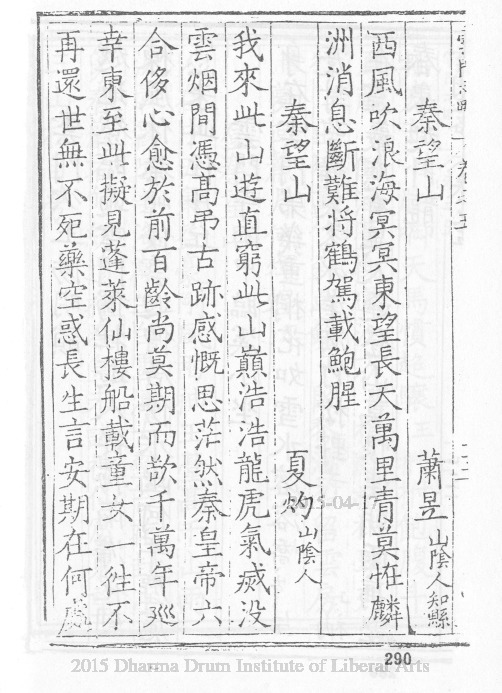 秦望山 蕭昱山陰人知縣
西風吹浪海冥冥東望長天萬里青莫恠麟
洲消息斷難将鶴駕載鮑腥
秦望山 夏灼山陰人
我來此山遊直窮此山巔浩浩龍虎氣滅没
雲烟間憑髙弔古跡感慨思茫然秦皇帝六
合侈心愈於前百齡尚莫期而欲千萬年廵
幸東至此擬見蓬萊仙樓船載童女一徃不
再還世無不死藥空惑長生言安期在何處
290
2015 Dharma Drum Institute of Liberal Arts